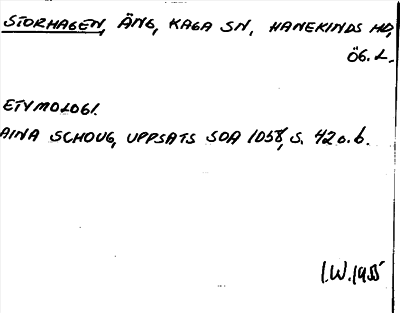 STORHAGEN, ÄNG, KAGA SN, HANEKINDS HD,
ÖG. L.
ETYMOLOGI.
AINA SCHOUG, UPPSATS SOA 1058, S. 42 o. b.
I.W. 1955